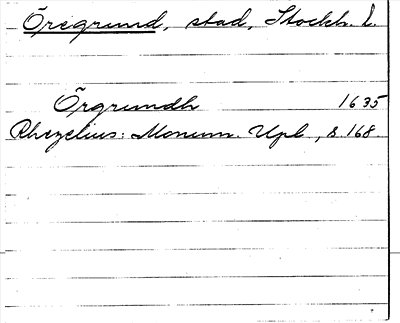 Öregrund, stad, Stockh. L.
Örgrundh 1635
Rhezelius: Monum. Upl, s. 168.